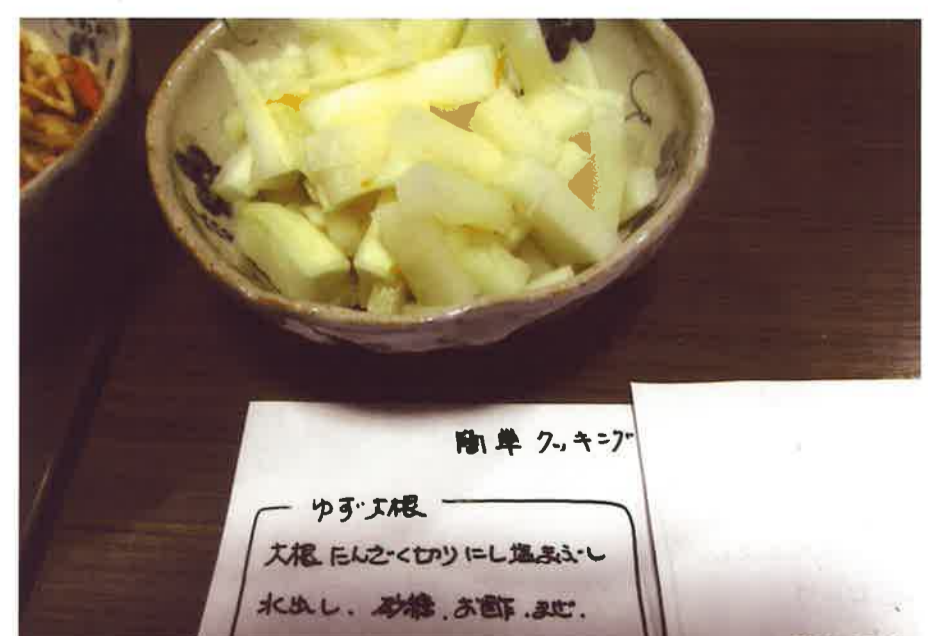 簡単 クッキング
ゆず大根
大根 たんざく切りにし塩まぶし
水出し、砂糖、お酢、まぜ、